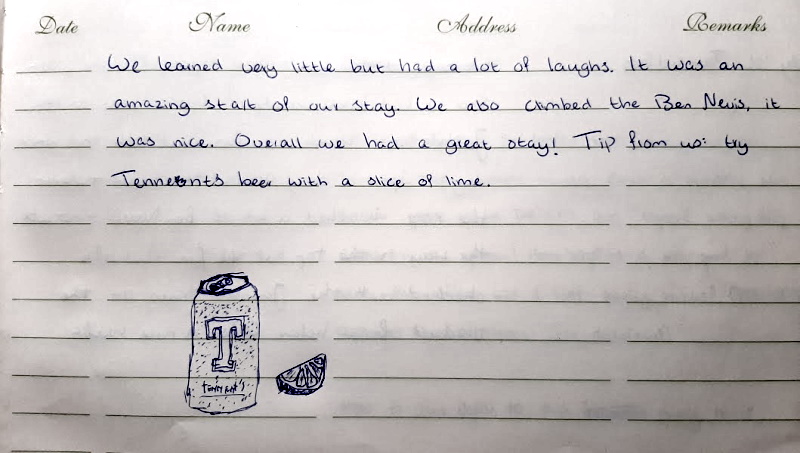 Date Name Address Remarks
We learned very little but had a lot of laughs. It was an
amazing start of our stay. We also climbed the Ben Nevis, it
was nice. Overall we had a great stay! Tip from us: try
Tennents beer with a slice of lime.
T
tennent's